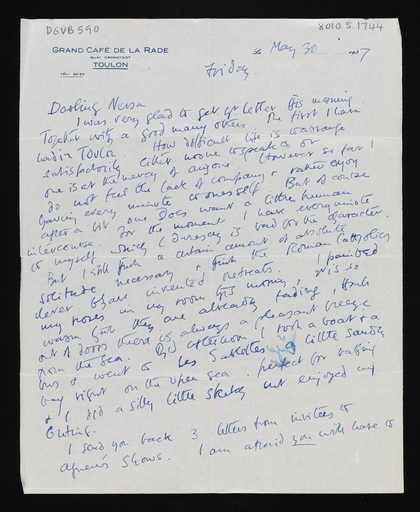 DGVB 590
8010.5.1744
GRAND CAFÉ DE LA RADE
QUAI CRONSTADT
TOULON
le May 30
Friday
Darling Nessa
I was very glad to get yr letter this morning
Together with a good many others. The first I have
had in Toulon How difficult life is to arrange
satisfactorily either no one to speak to or
one is at the mercy of anyone. However so far I
do not feel the lack of company & rather enjoy
having every minute to oneself. But of course
after a bit one does want a little human
intercourse. For the moment I have every minute
to myself which I daresay is bad for the character.
But I still think a certain amount of absolute
solitude necessary & think the Roman Catholics
clever to have invented retreats. I painted
my roses in my room this morning, it is so
warm that they are already fading, though
out of doors there is always a pleasant breeze
from the sea. This afternoon I took a boat & a
bus & went to Les Sablettes a little sandy
bay right on the open sea perfect for bathing
& I did a silly little sketch but enjoyed my
outing.
I send you back 3 letters from invitees to
Agnew's shows. I am afraid you will have to